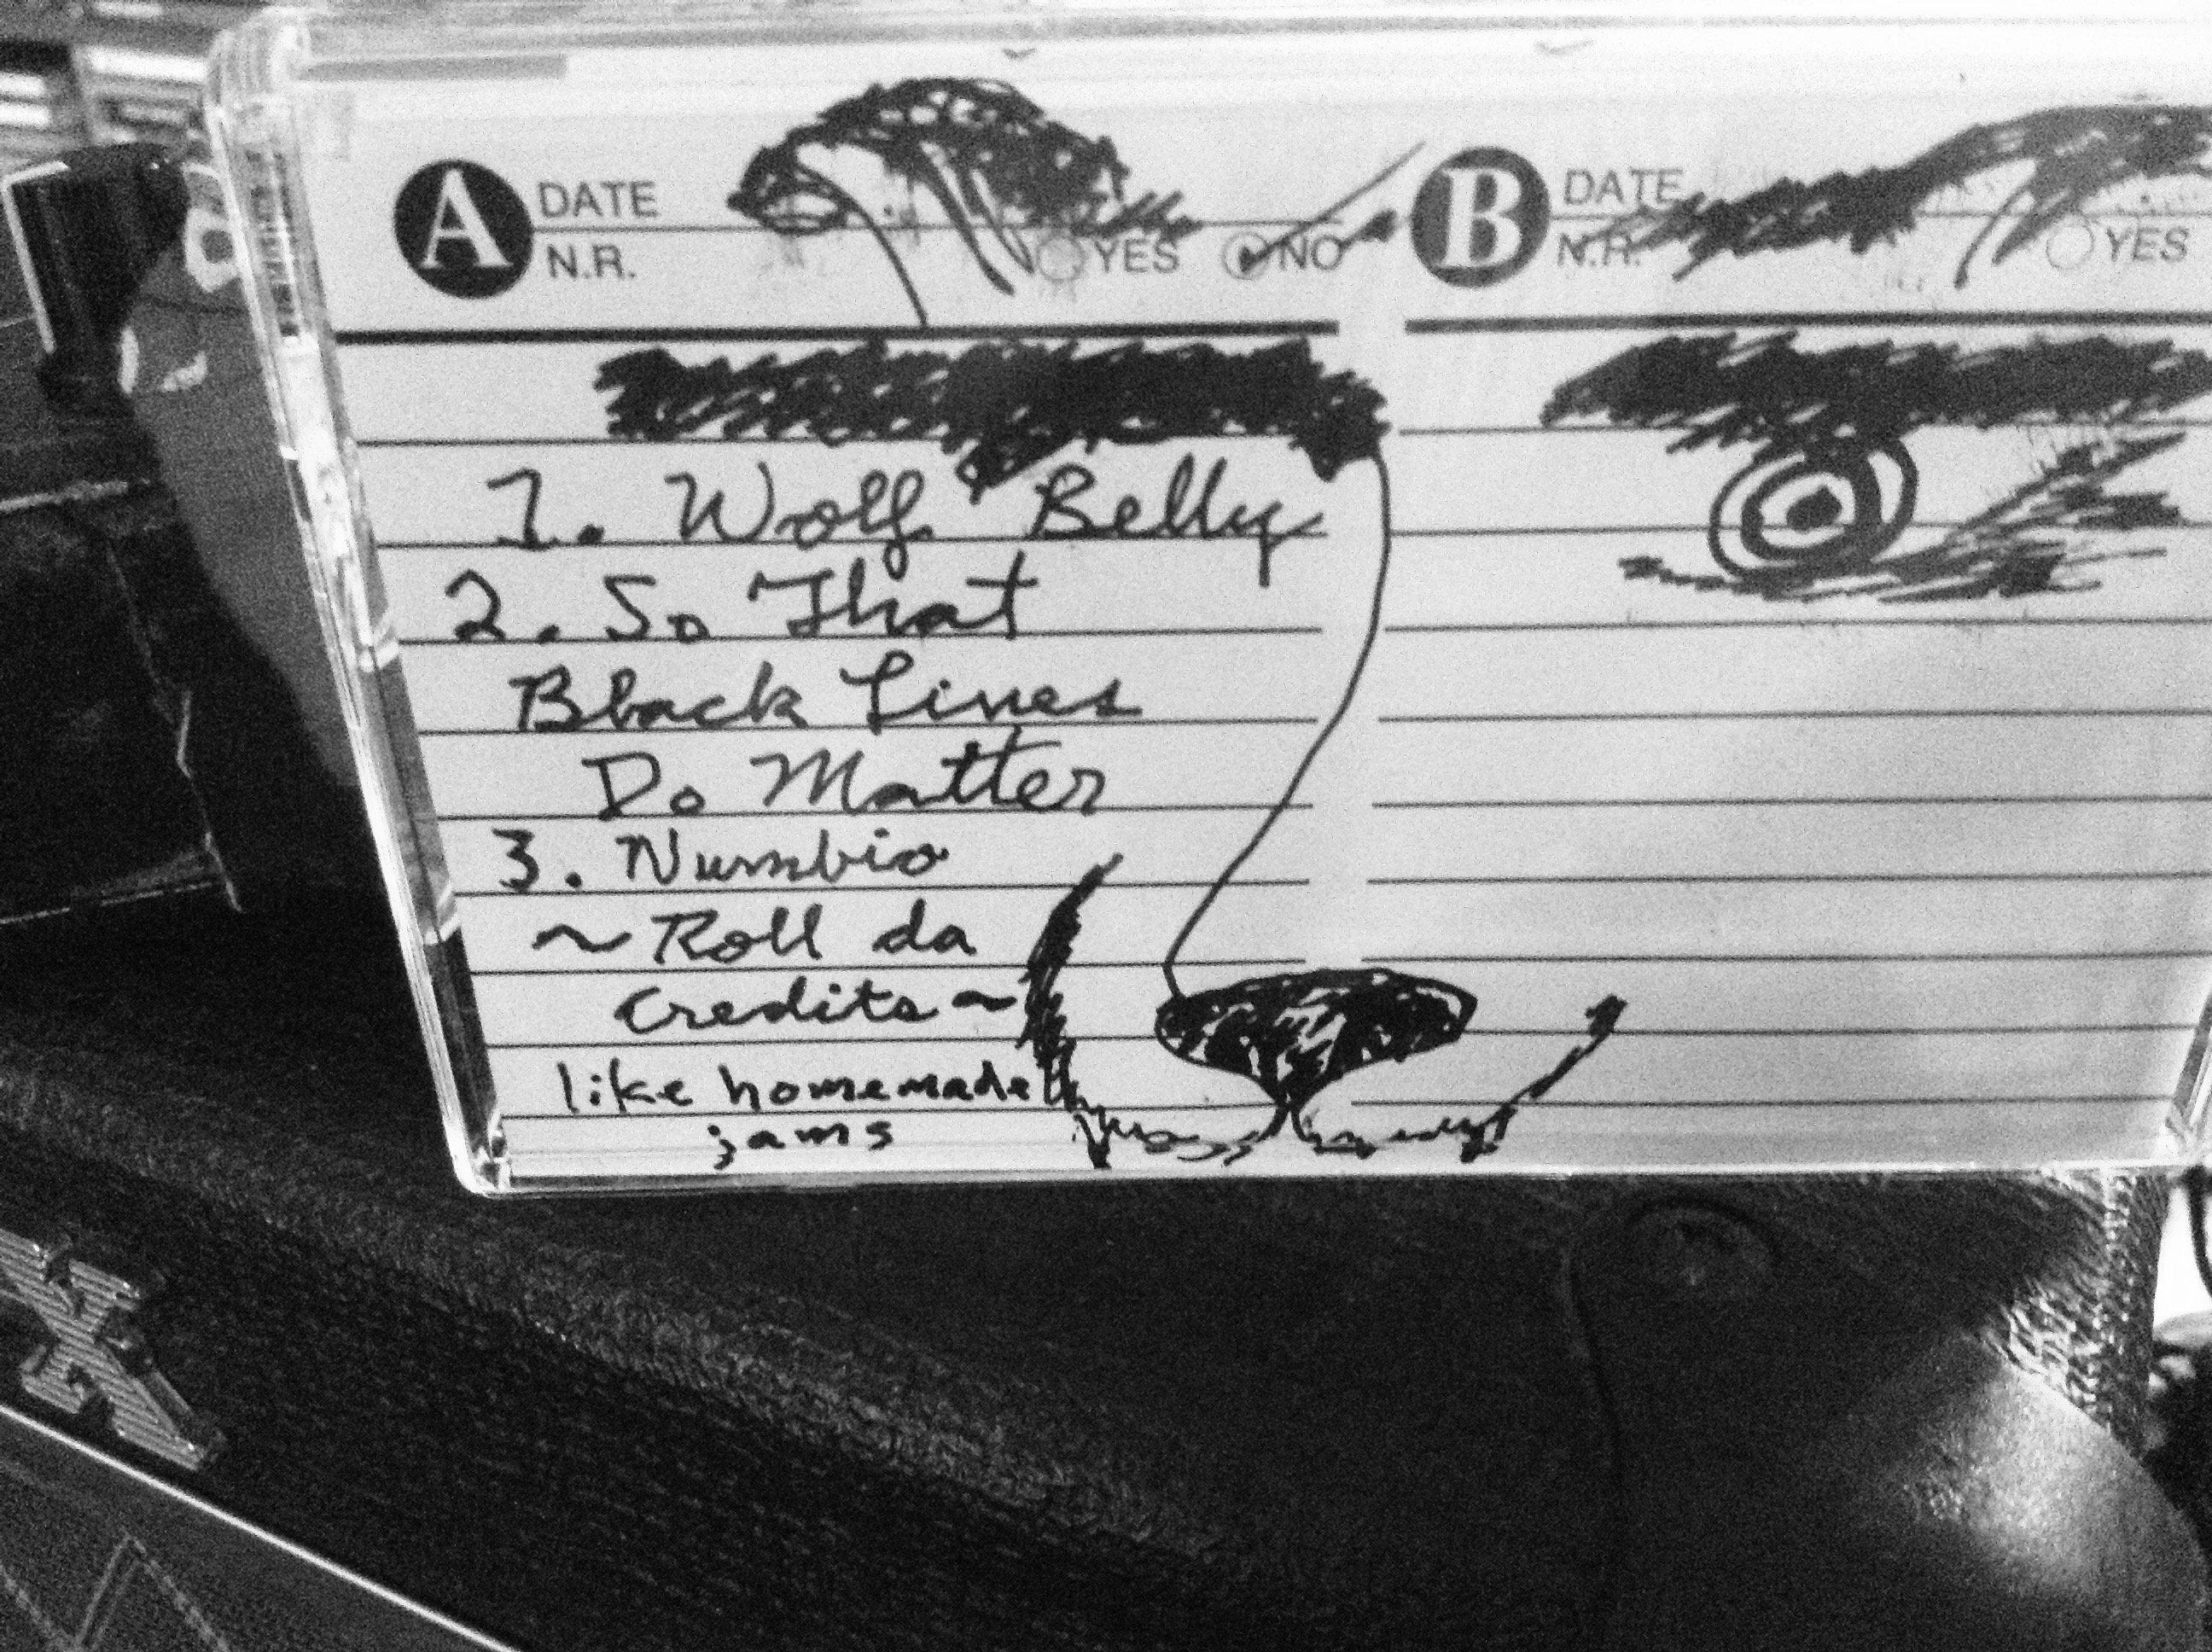 A DATE
N.R. YES NO
B DATE
N.R. YES
1. Wolf Belly
2. So That
Black Lines
Do Matter
3. Numbio
~ Roll da
credits ~
like homemade
jams